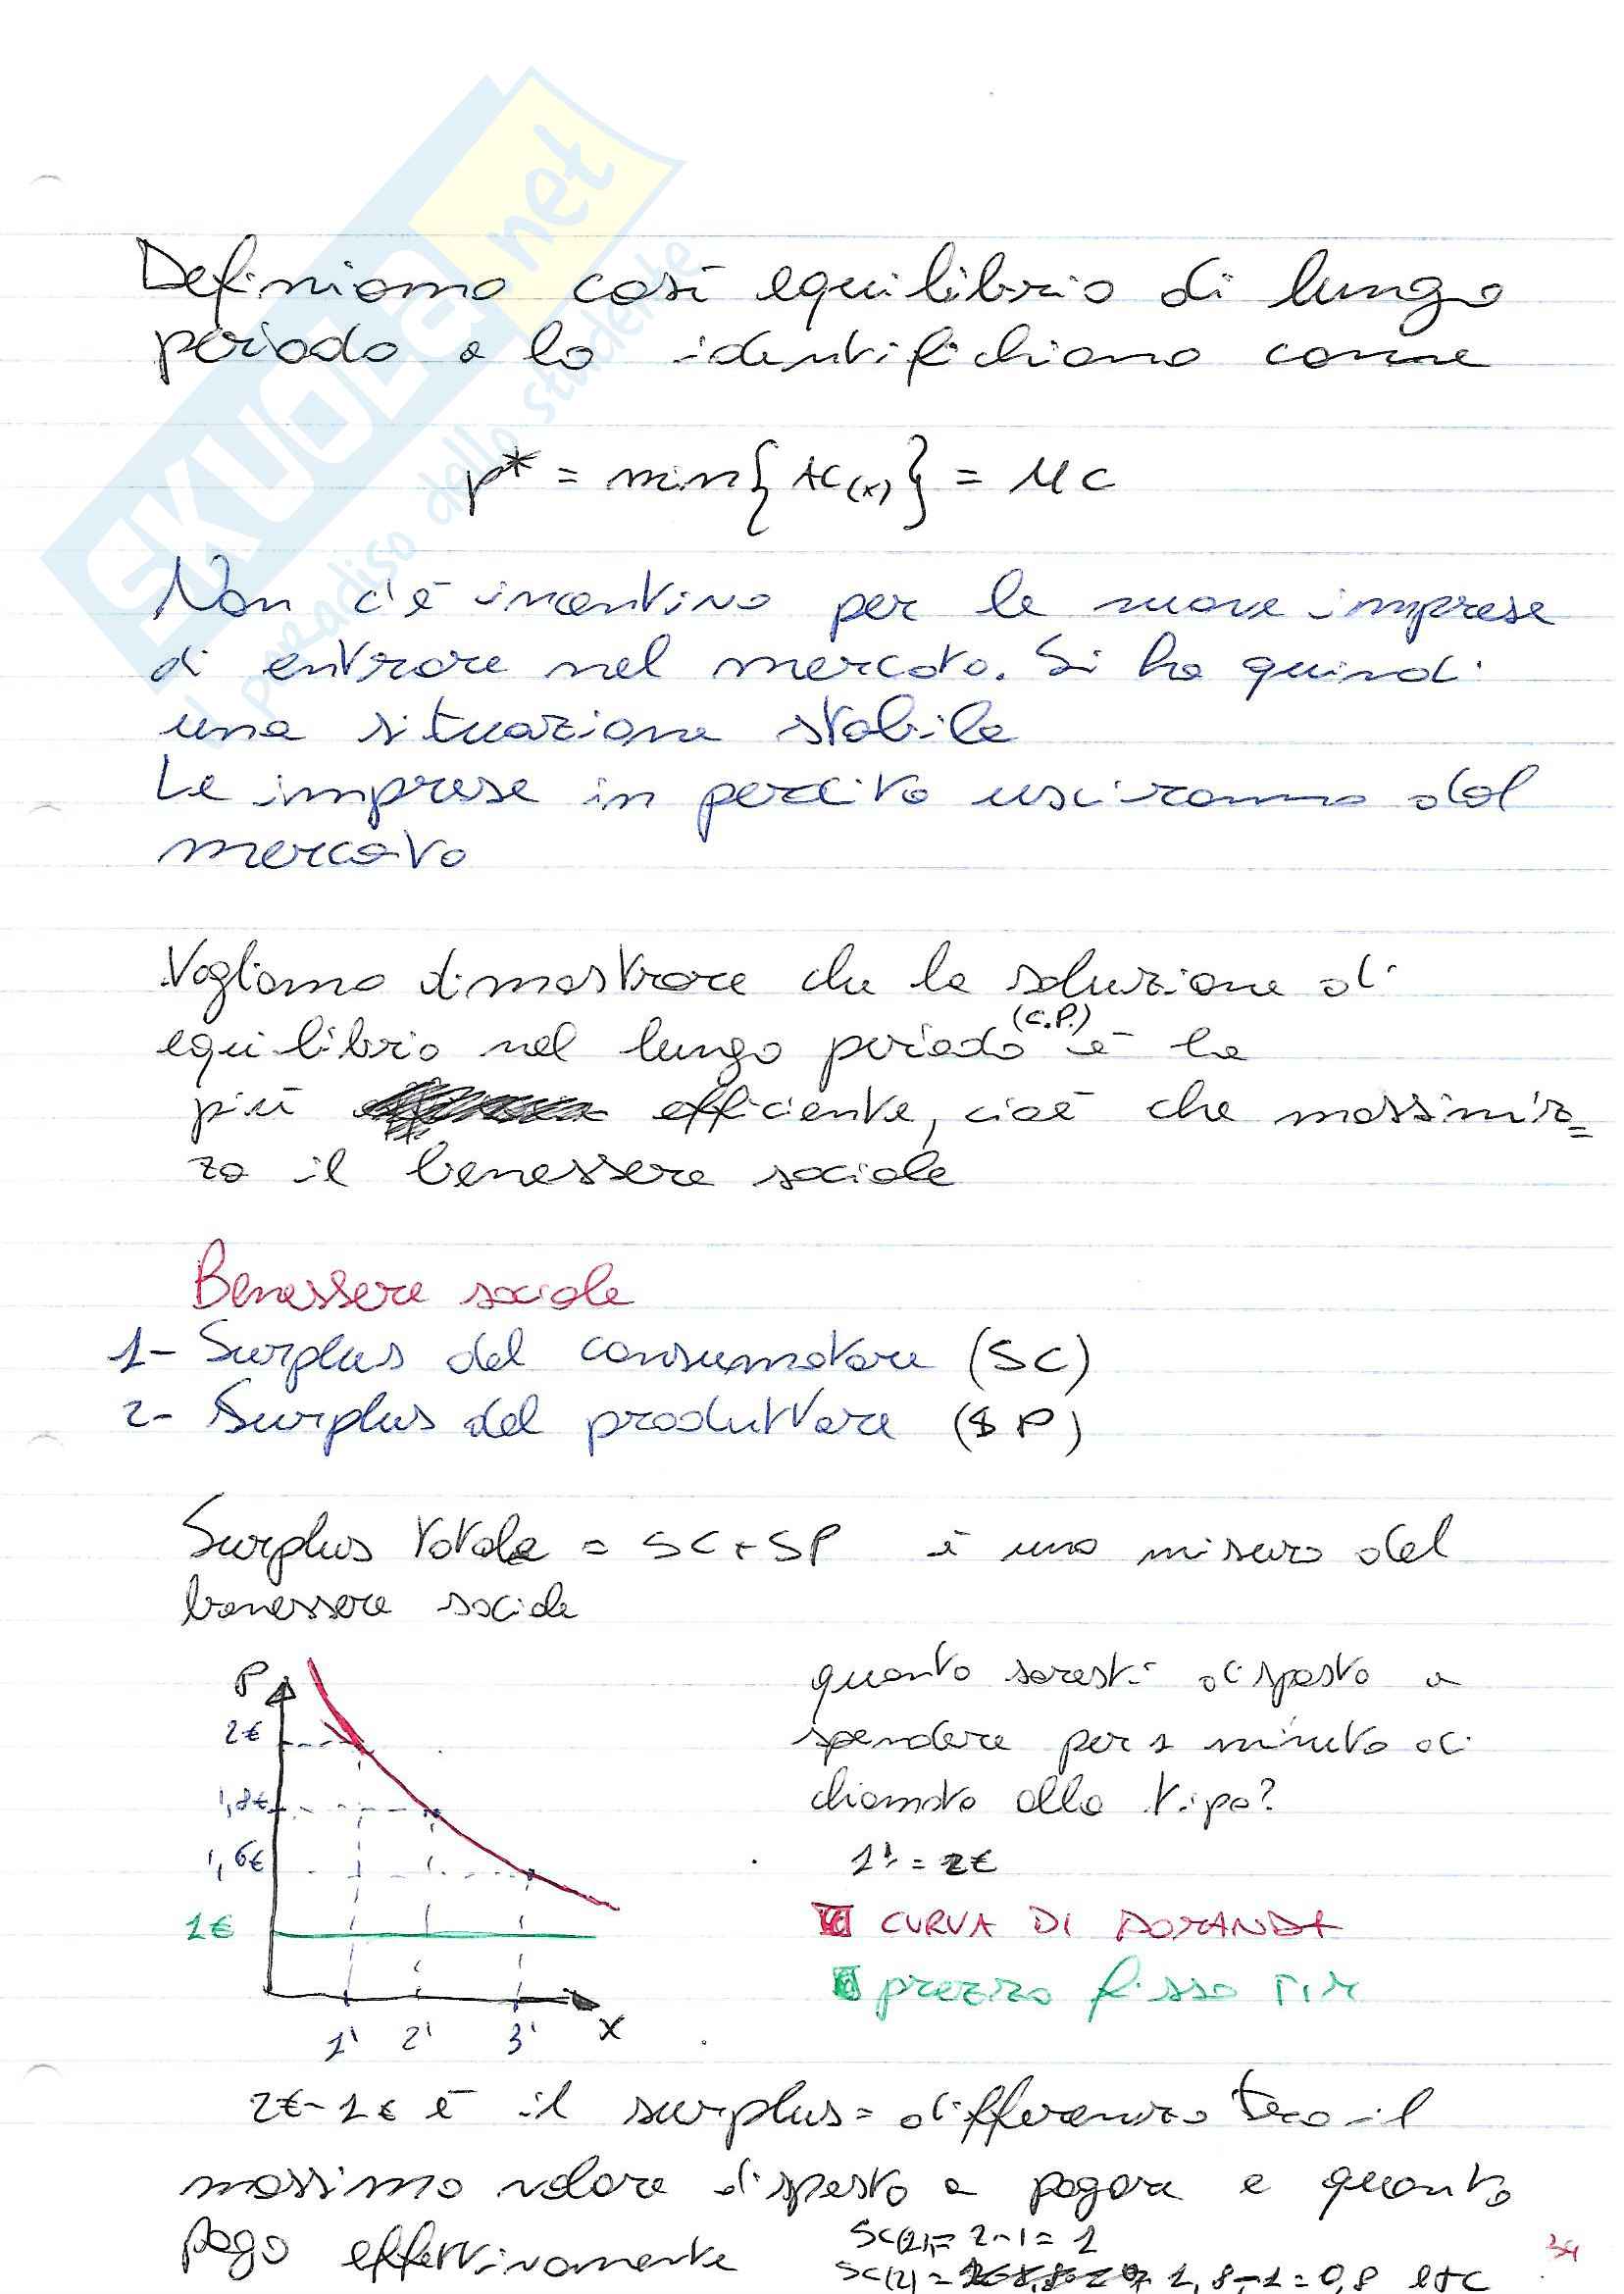 SKUOLA.net
il paradiso dello studente
Definiamo così equilibrio di lungo
periodo e lo identifichiamo come
p* = min{AC(x)} = MC
Non c'è incentivo per le nuove imprese
di entrare nel mercato. Si ha quindi
una situazione stabile
Le imprese in perdita usciranno dal
mercato
Vogliamo dimostrare che la soluzione di
equilibrio nel lungo periodo (C.P.) è la
più efficiente, cioè che massimiz=
za il benessere sociale
Benessere sociale
1- Surplus del consumatore (SC)
2- Surplus del produttore (SP)
Surplus totale = SC+SP è una misura del
benessere sociale
P
2€
1,8€
1,6€
1€
1' 2' 3' X
quanto saresti disposto a
spendere per 1 minuto di
chiamata alla tipa?
1' = 2€
CURVA DI DOMANDA
prezzo fisso TIM
2€-1€ è il surplus= differenza tra il
massimo valore disposto a pagare e quanto
pago effettivamente
SC(1)= 2-1= 1
SC(2)= 1,8-1=0,8 etc
34